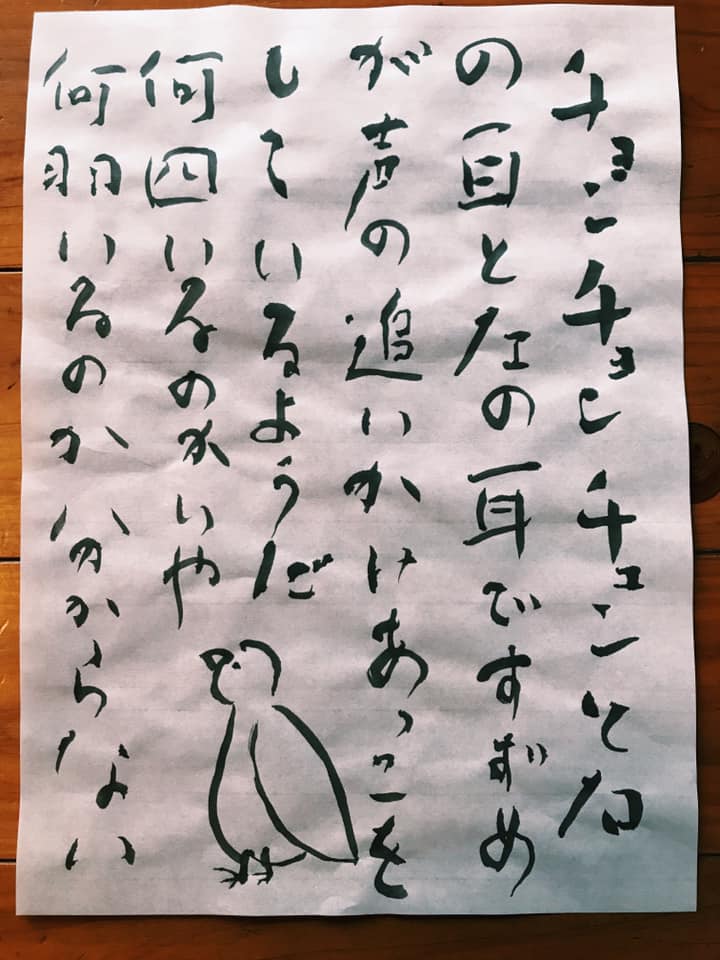 チョンチョンチュンと右
の耳と左の耳ですずめ
が声の追いかけあっこを
しているようだ
何匹いるのかいや
何羽いるのか分からない